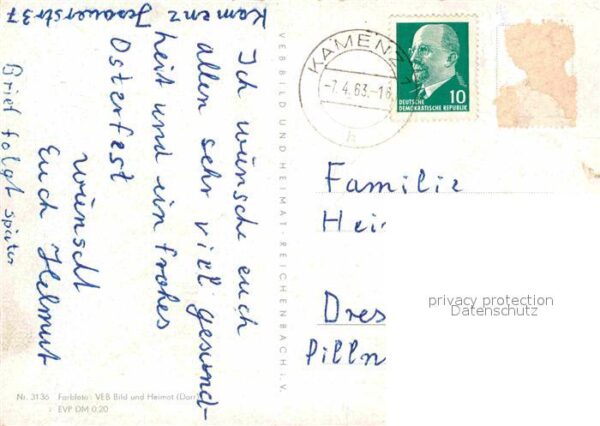 Kamenz Jesauerstr 37
Ich wünsche euch
allen sehr viel gesund-
heit und ein frohes
Osterfest
wünscht
Euch Helmut
Brief folgt später
VEB BILD UND HEIMAT · REICHENBACH i. V.
KAMENZ
-7.4.63.-18
h
10
DEUTSCHE
DEMOKRATISCHE REPUBLIK
Familie
Hei
Dres
Pilln
privacy protection
Datenschutz
Nr. 3136 Farbfoto: VEB Bild und Heimat (Darr
EVP DM 0,20